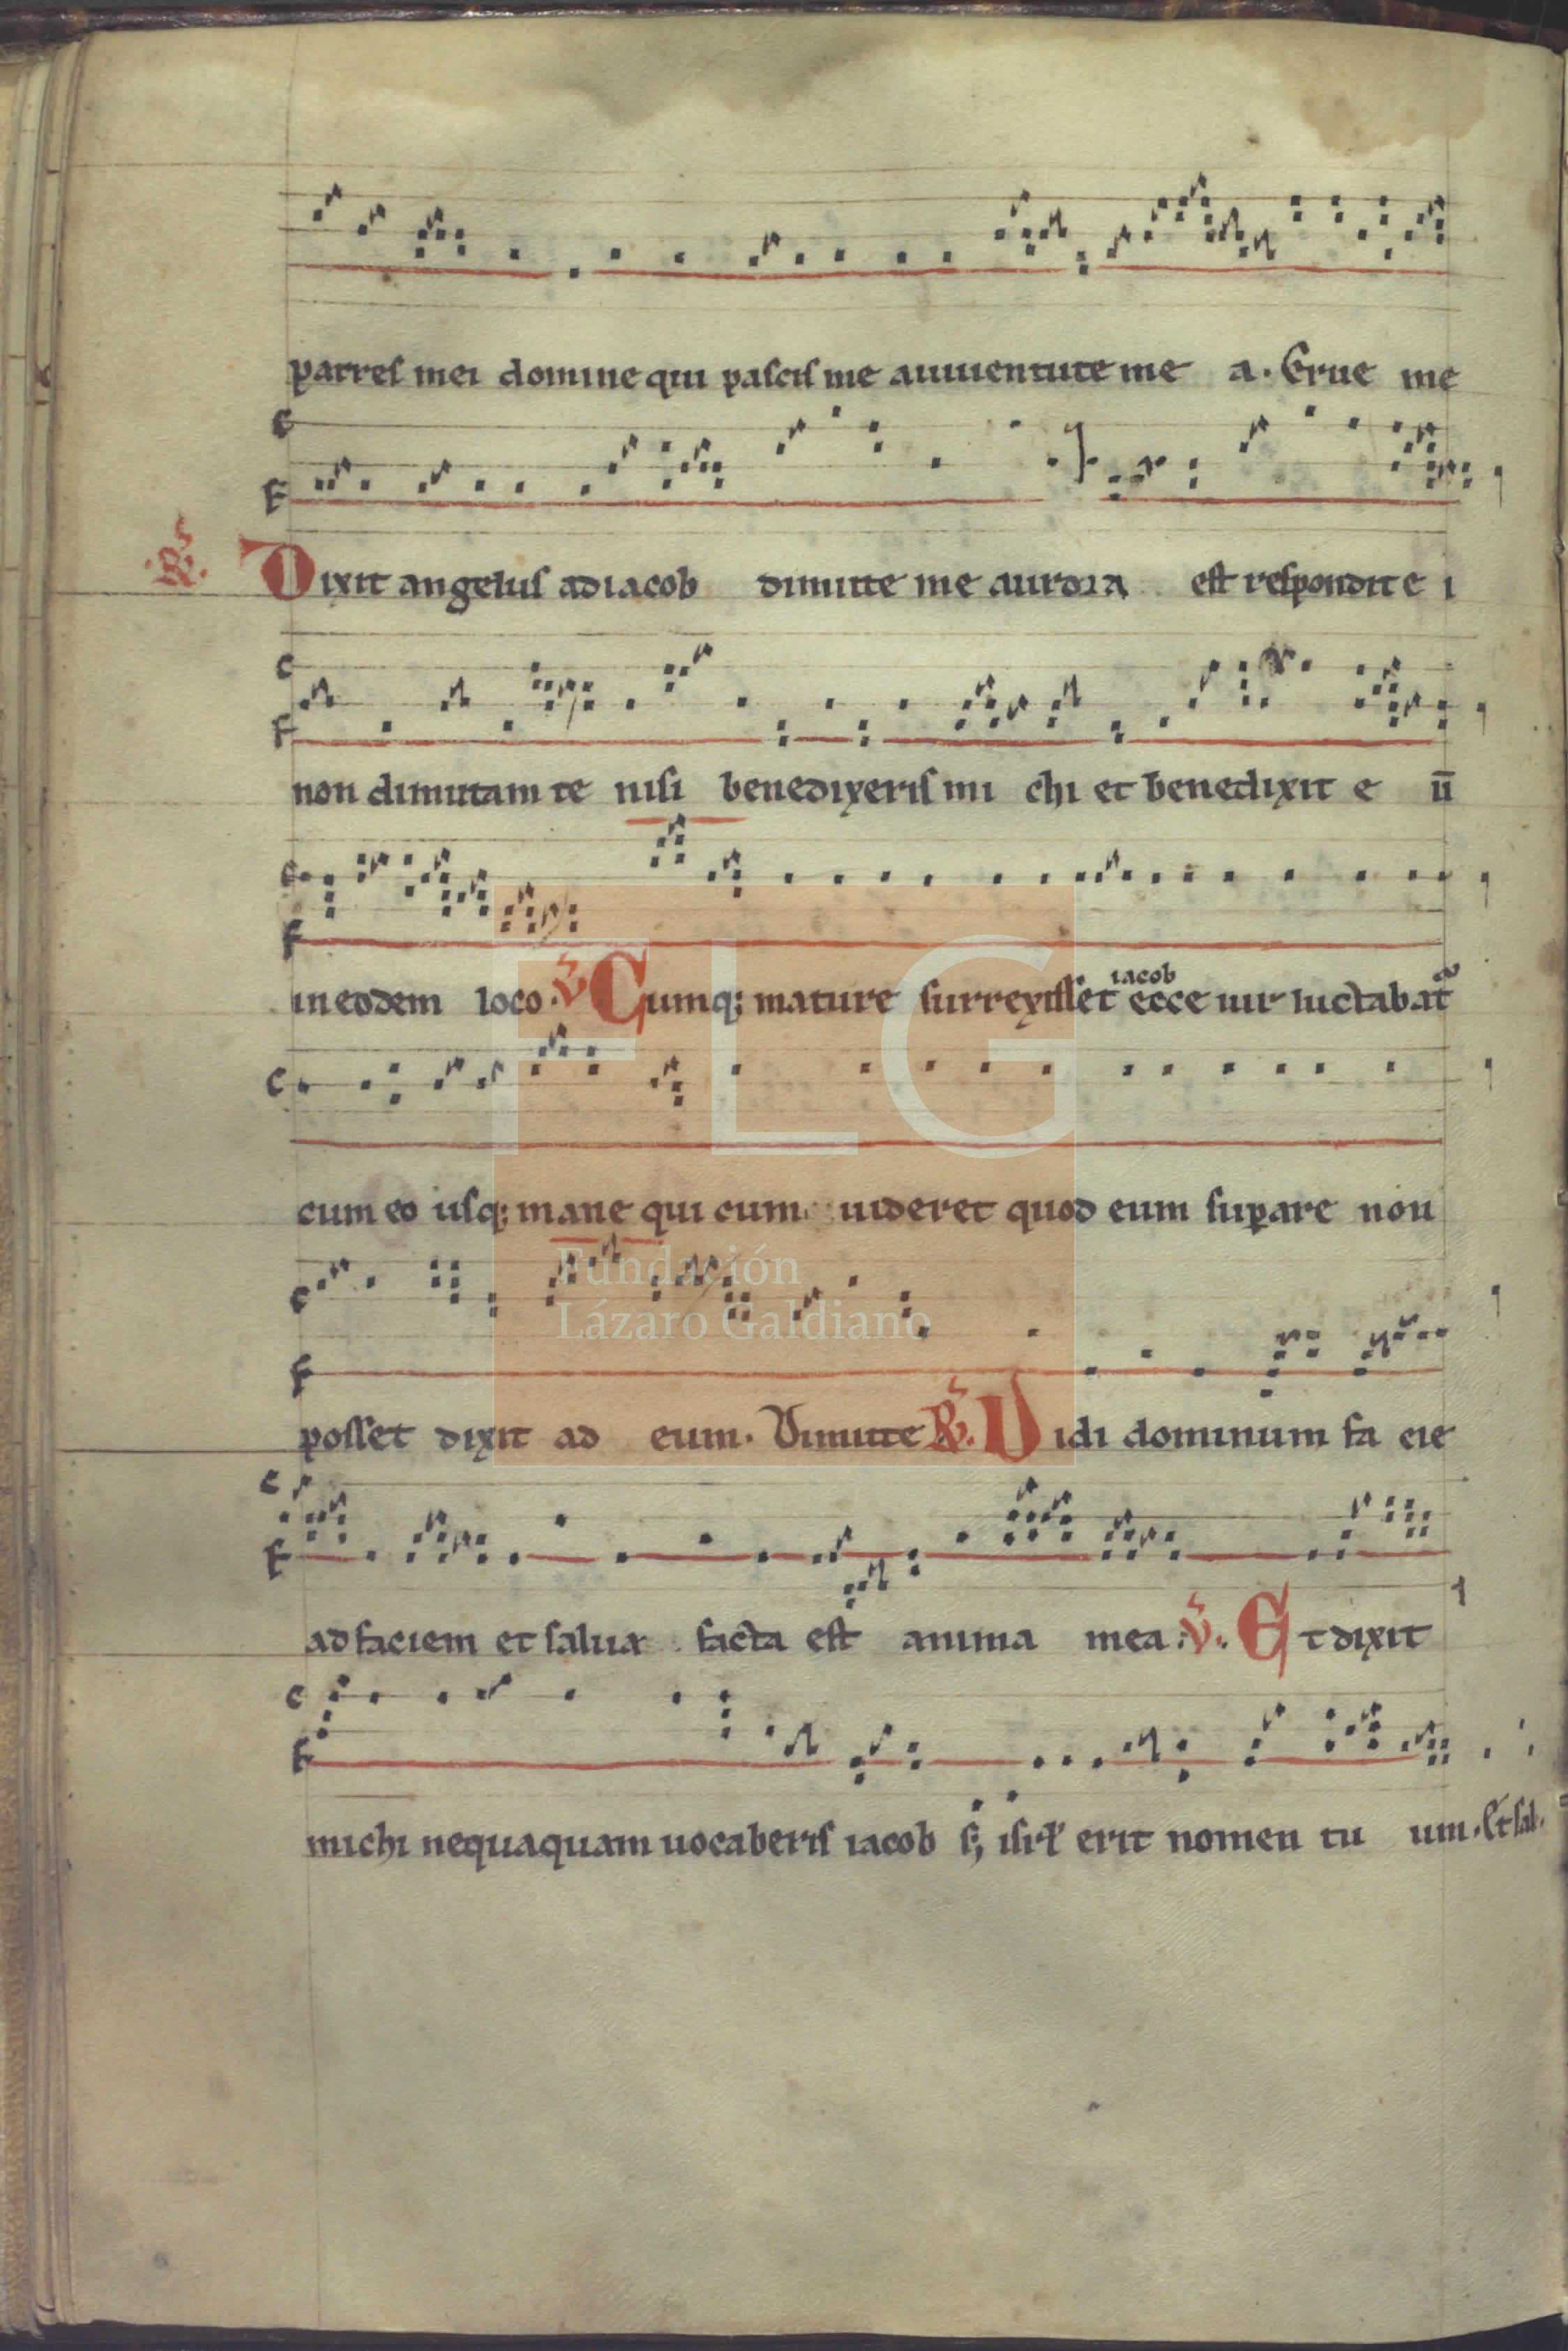 patres mei domine qui pascis me aiuuentute me a. Erue me
R. Dixit angelus ad iacob dimitte me aurora est respondit e i
non dimittam te nisi benedixeris mi chi et benedixit e ū
in eodem loco. V. Cumq; mature surrexisset iacob ecce uir luctabat̃
cum eo usq; mane qui cum uideret quod eum suꝑare non
posset dixit ad eum. Dimitte R. Vidi dominum fa cie
ad faciem et salua facta est anima mea. V. Et dixit
michi nequaquam uocaberis iacob s; isrl' erit nomen tu um. Et sal.
FLG
Fundación
Lázaro Galdiano